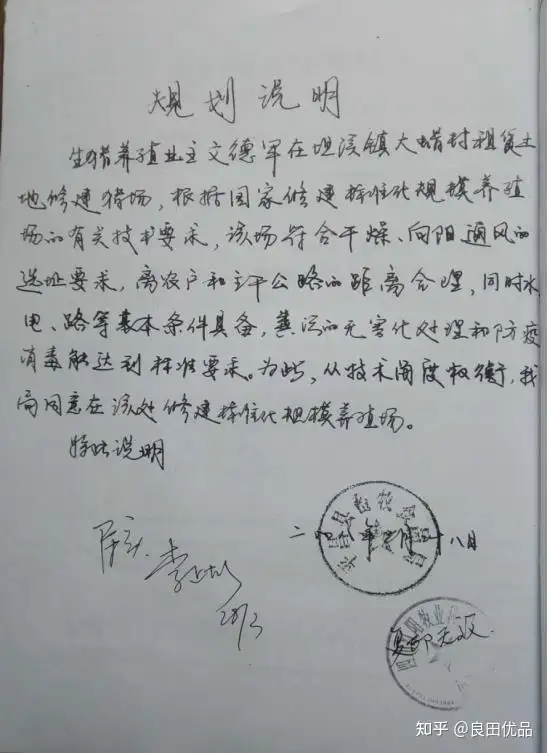 规划说明
生猪养殖业主文德军在坦溪镇大蜡村租赁土
地修建猪场，根据国家修建标准化规模养殖
场的有关技术要求，该场符合干燥、向阳通风的
选址要求，离农户和主干公路的距离合理，同时水
电、路等基本条件具备，粪污的无害化处理和防疫
消毒能达到标准要求。为此，从技术角度权衡，我
局同意在该处修建标准化规模养殖场。
特此说明
属实.
二〇〇八年 月十八日
复印无效.
知乎 @良田优品